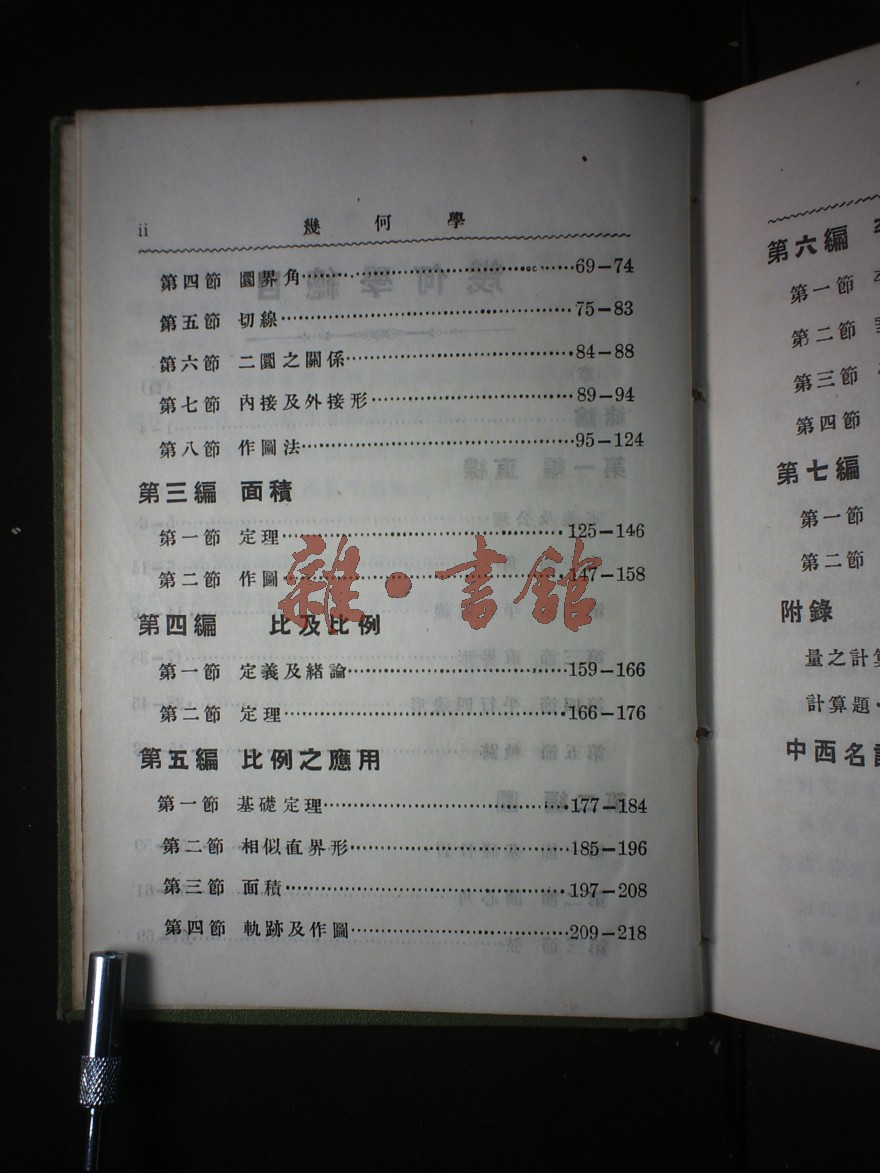 ii 幾何學
第四節 圓界角……………………………………69—74
第五節 切線……………………………………75—83
第六節 二圓之關係……………………………84—88
第七節 內接及外接形…………………………89—94
第八節 作圖法…………………………………95—124
第三編 面積
第一節 定理……………………………………125—146
第二節 作圖……………………………………147—158
第四編 比及比例
第一節 定義及緒論……………………………159—166
第二節 定理……………………………………166—176
第五編 比例之應用
第一節 基礎定理………………………………177—184
第二節 相似直界形……………………………185—196
第三節 面積……………………………………197—208
第四節 軌跡及作圖……………………………209—218
雜·書館
第六編
第一節
第二節
第三節
第四節
第七編
第一節
第二節
附錄
量之計算
計算題
中西名